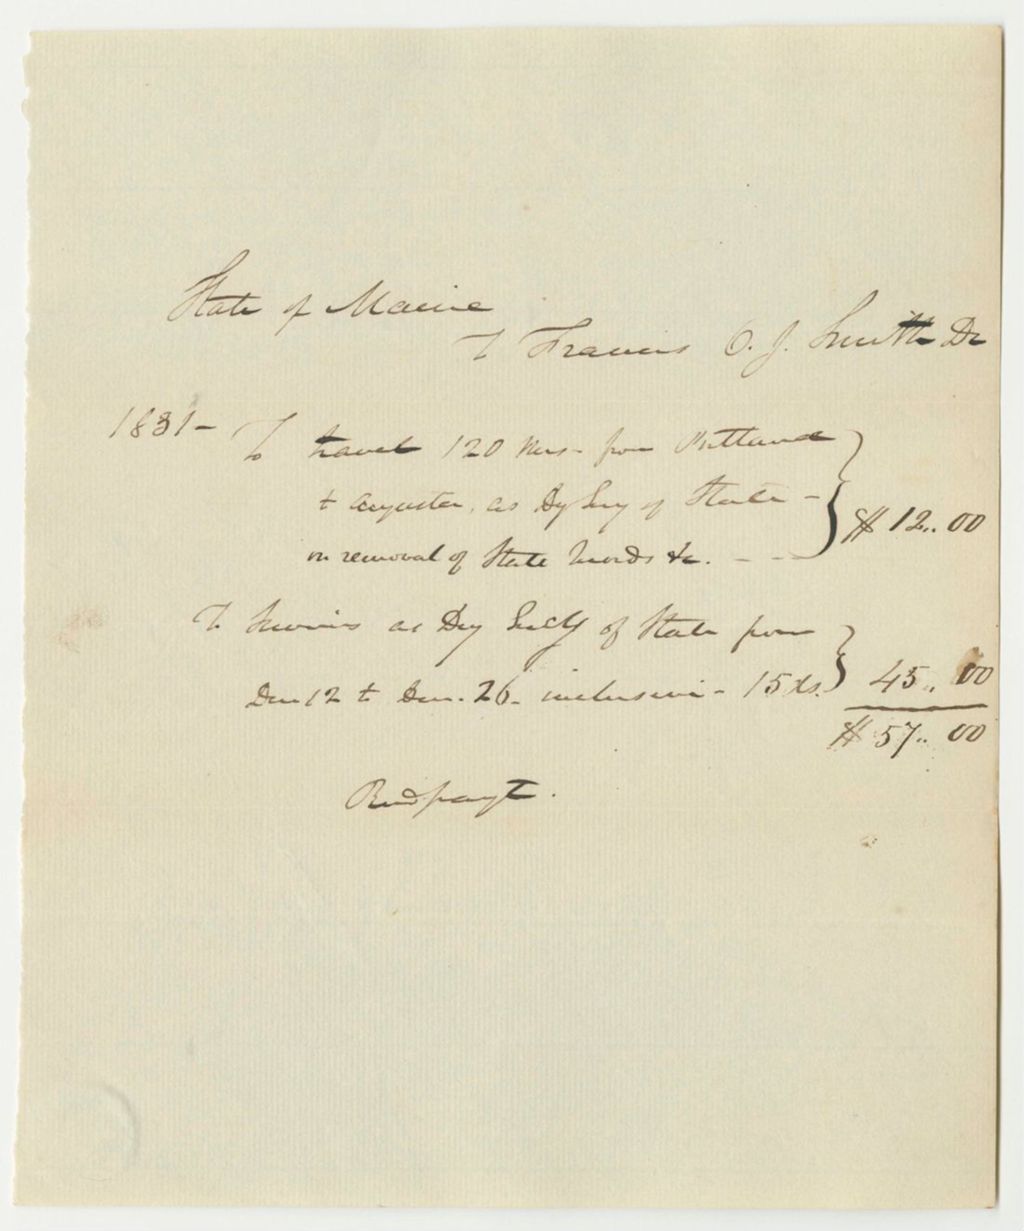 State of Maine
To Francis O. J. Smith Dr
1831- To travel 120 miles from Portland
to Augusta, as Dy Secy of State -
on removal of State records &c. - - - $12..00
To services as Dey Secy of State from
Dec 12 to Dec. 26- inclusive - 15 ds. 45..00
$57..00
Recd payt.